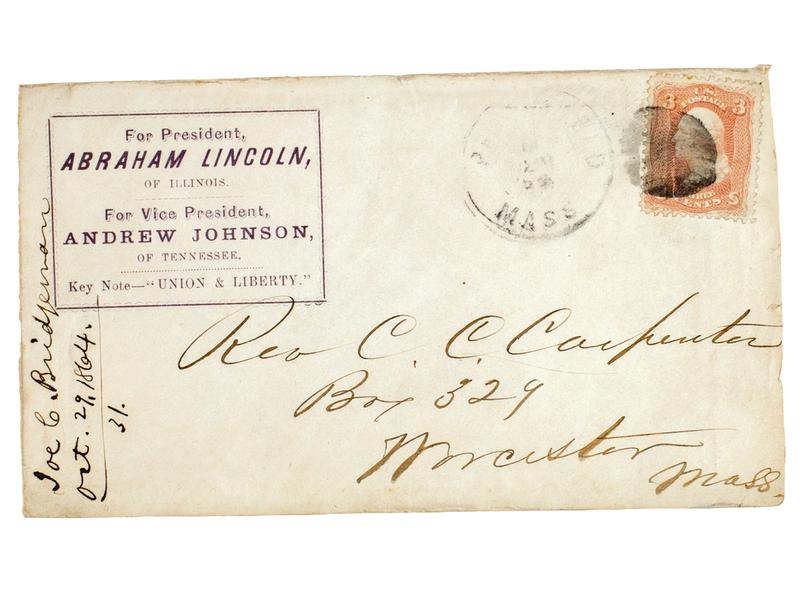 For President,
ABRAHAM LINCOLN,
OF ILLINOIS.
For Vice President,
ANDREW JOHNSON,
OF TENNESSEE.
Key Note—"UNION & LIBERTY."
MASS
U.S.
POSTAGE
3 3
CENTS
Rev C. C. Carpenter
Box 329
Worcester
Mass.
Joe C. Bridgman
Oct. 29, 1864.
31.